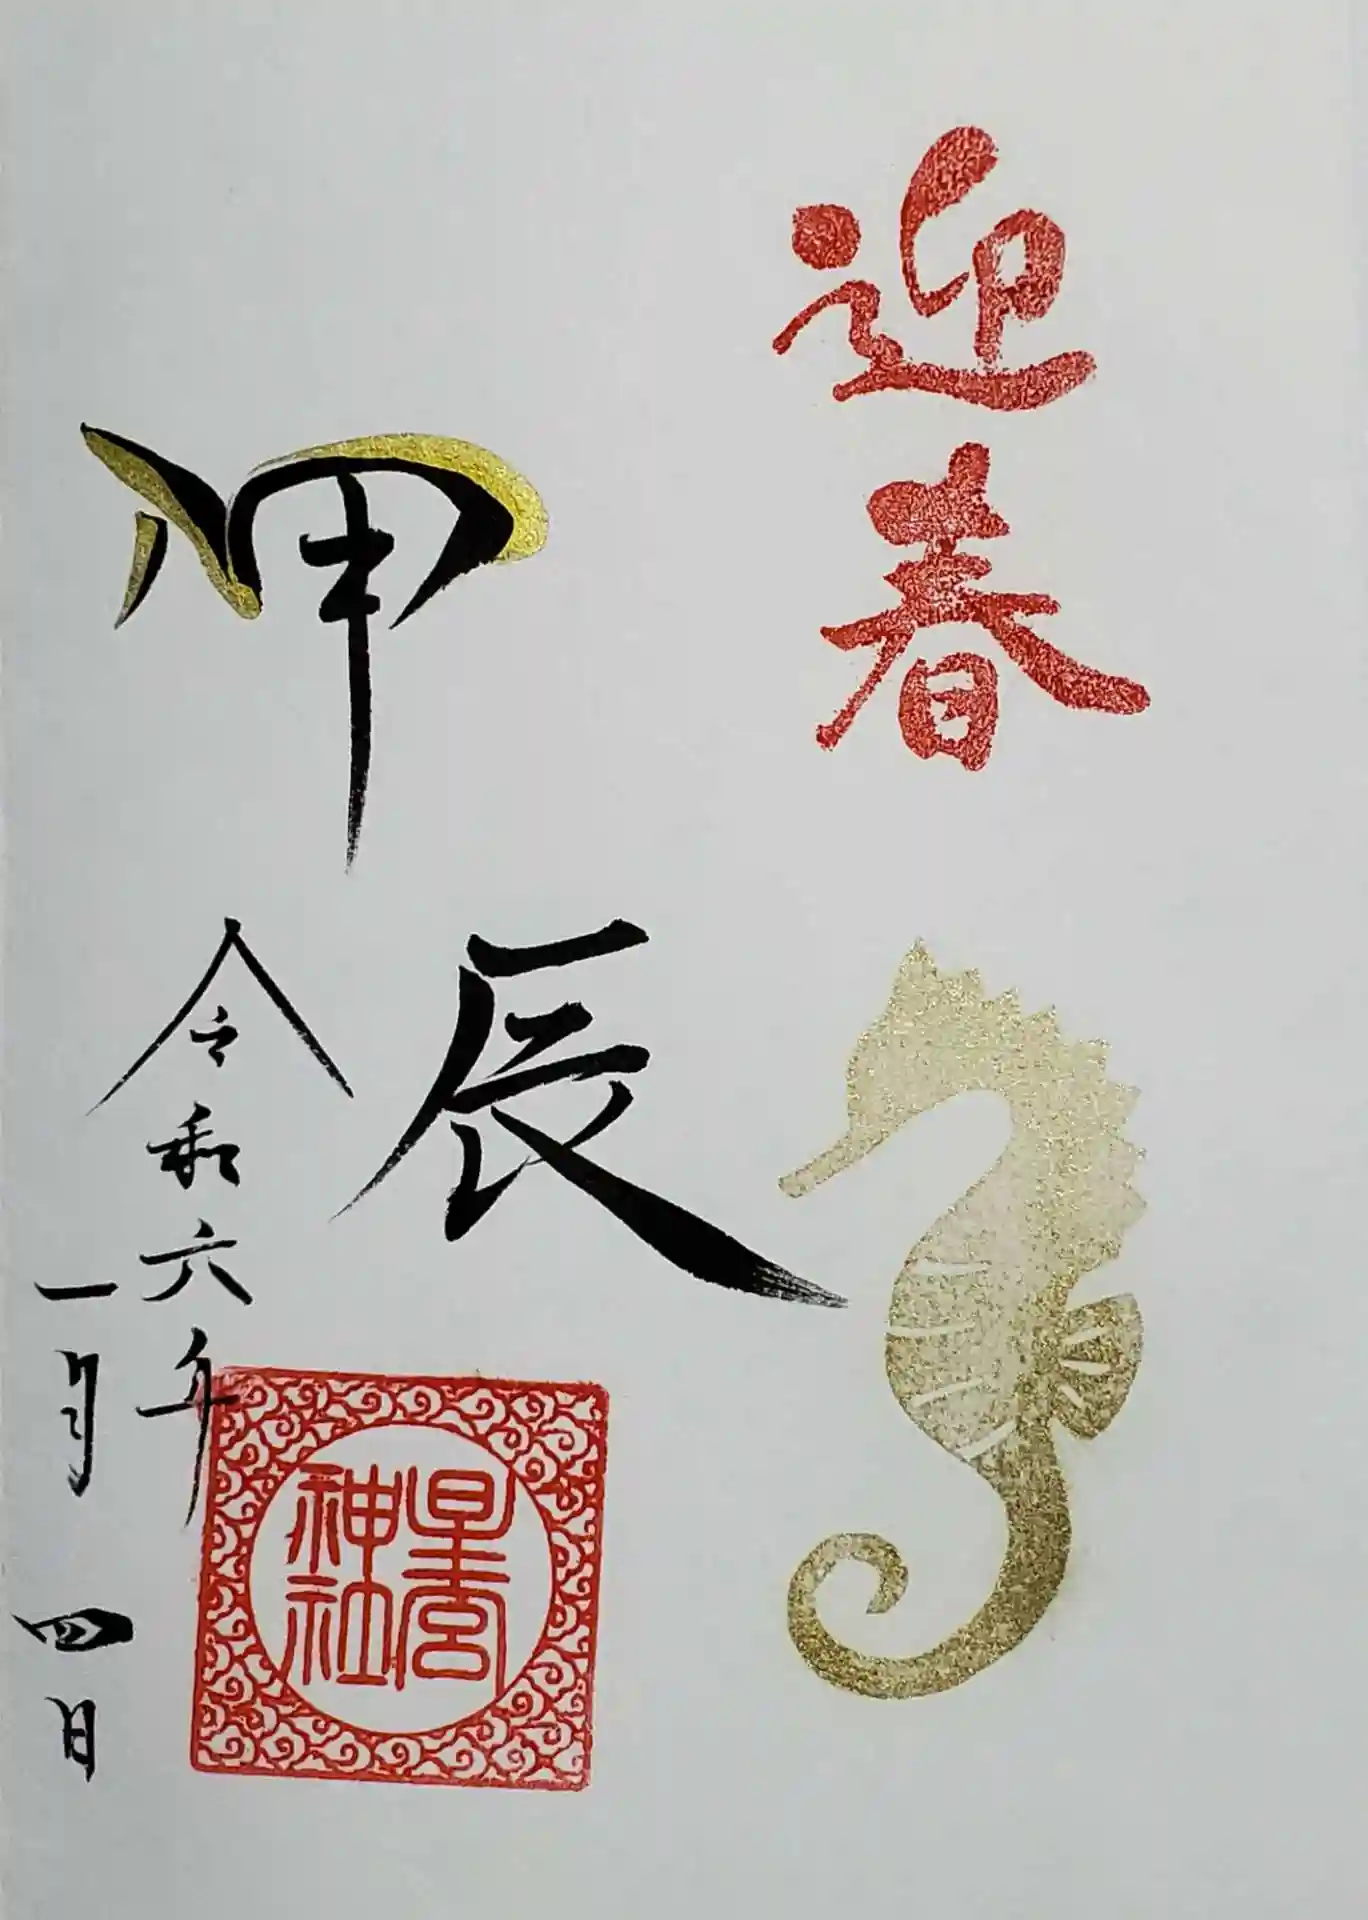 迎春
甲
辰
令和六年
一月四日
星宮
神社